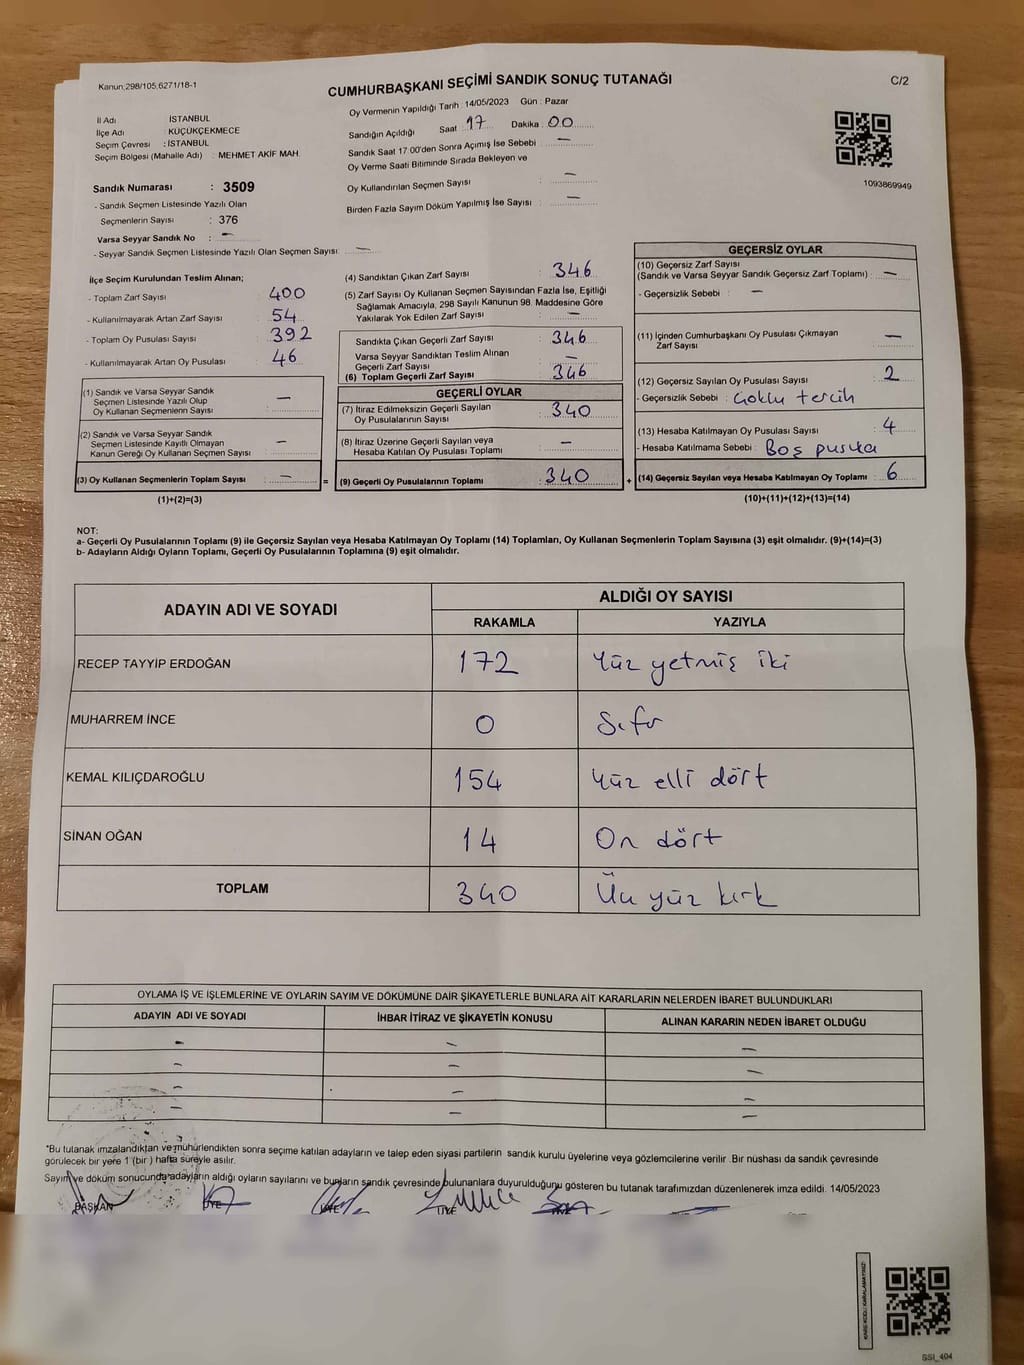 Kanun:298/105,6271/18-1
CUMHURBAŞKANI SEÇİMİ SANDIK SONUÇ TUTANAĞI
C/2
İl Adı İSTANBUL
İlçe Adı : KÜÇÜKÇEKMECE
Seçim Çevresi : İSTANBUL
Seçim Bölgesi (Mahalle Adı) : MEHMET AKİF MAH.
Sandık Numarası : 3509
- Sandık Seçmen Listesinde Yazılı Olan
Seçmenlerin Sayısı : 376
Varsa Seyyar Sandık No : —
- Seyyar Sandık Seçmen Listesinde Yazılı Olan Seçmen Sayısı : —
Oy Vermenin Yapıldığı Tarih : 14/05/2023 Gün : Pazar
Sandığın Açıldığı Saat : 17 Dakika : 00
Sandık Saat 17:00'den Sonra Açımış İse Sebebi : —
Oy Verme Saati Bitiminde Sırada Bekleyen ve
Oy Kullandırılan Seçmen Sayısı : —
Birden Fazla Sayım Döküm Yapılmış İse Sayısı : —
1093869949
İlçe Seçim Kurulundan Teslim Alınan;
- Toplam Zarf Sayısı : 400
- Kullanılmayarak Artan Zarf Sayısı : 54
- Toplam Oy Pusulası Sayısı : 392
- Kullanılmayarak Artan Oy Pusulası : 46
(1) Sandık ve Varsa Seyyar Sandık
Seçmen Listesinde Yazılı Olup
Oy Kullanan Seçmenlerin Sayısı : —
(2) Sandık ve Varsa Seyyar Sandık
Seçmen Listesinde Kayıtlı Olmayan
Kanun Gereği Oy Kullanan Seçmen Sayısı : —
(3) Oy Kullanan Seçmenlerin Toplam Sayısı : —
(1)+(2)=(3)
(4) Sandıktan Çıkan Zarf Sayısı : 346
(5) Zarf Sayısı Oy Kullanan Seçmen Sayısından Fazla İse, Eşitliği
Sağlamak Amacıyla, 298 Sayılı Kanunun 98. Maddesine Göre
Yakılarak Yok Edilen Zarf Sayısı : —
Sandıkta Çıkan Geçerli Zarf Sayısı : 346
Varsa Seyyar Sandıktan Teslim Alınan
Geçerli Zarf Sayısı : —
(6) Toplam Geçerli Zarf Sayısı : 346
GEÇERLİ OYLAR
(7) İtiraz Edilmeksizin Geçerli Sayılan
Oy Pusulasının Sayısı : 340
(8) İtiraz Üzerine Geçerli Sayılan veya
Hesaba Katılan Oy Pusulası Toplamı : —
= (9) Geçerli Oy Pusulalarının Toplamı : 340 +
GEÇERSİZ OYLAR
(10) Geçersiz Zarf Sayısı
(Sandık ve Varsa Seyyar Sandık Geçersiz Zarf Toplamı) : —
- Geçersizlik Sebebi : —
(11) İçinden Cumhurbaşkanı Oy Pusulası Çıkmayan
Zarf Sayısı : —
(12) Geçersiz Sayılan Oy Pusulası Sayısı : 2
- Geçersizlik Sebebi : Çoklu tercih
(13) Hesaba Katılmayan Oy Pusulası Sayısı : 4
- Hesaba Katılmama Sebebi : Boş pusula
(14) Geçersiz Sayılan veya Hesaba Katılmayan Oy Toplamı : 6
(10)+(11)+(12)+(13)=(14)
NOT:
a- Geçerli Oy Pusulalarının Toplamı (9) ile Geçersiz Sayılan veya Hesaba Katılmayan Oy Toplamı (14) Toplamları, Oy Kullanan Seçmenlerin Toplam Sayısına (3) eşit olmalıdır. (9)+(14)=(3)
b- Adayların Aldığı Oyların Toplamı, Geçerli Oy Pusulalarının Toplamına (9) eşit olmalıdır.
ADAYIN ADI VE SOYADI
ALDIĞI OY SAYISI
RAKAMLA YAZIYLA
RECEP TAYYİP ERDOĞAN 172 Yüz yetmiş iki
MUHARREM İNCE 0 Sıfır
KEMAL KILIÇDAROĞLU 154 Yüz elli dört
SİNAN OĞAN 14 On dört
TOPLAM 340 Üç yüz kırk
OYLAMA İŞ VE İŞLEMLERİNE VE OYLARIN SAYIM VE DÖKÜMÜNE DAİR ŞİKAYETLERLE BUNLARA AİT KARARLARIN NELERDEN İBARET BULUNDUKLARI
ADAYIN ADI VE SOYADI İHBAR İTİRAZ VE ŞİKAYETİN KONUSU ALINAN KARARIN NEDEN İBARET OLDUĞU
— — —
— — —
— — —
— — —
*Bu tutanak imzalandıktan ve mühürlendikten sonra seçime katılan adayların ve talep eden siyasi partilerin sandık kurulu üyelerine veya gözlemcilerine verilir. Bir nüshası da sandık çevresinde
görülecek bir yere 1 (bir) hafta süreyle asılır.
Sayım ve döküm sonucunda adayların aldığı oyların sayılarını ve bunların sandık çevresinde bulunanlara duyurulduğunu gösteren bu tutanak tarafımızdan düzenlenerek imza edildi. 14/05/2023
BAŞKAN ÜYE ÜYE ÜYE ÜYE
SSI_404